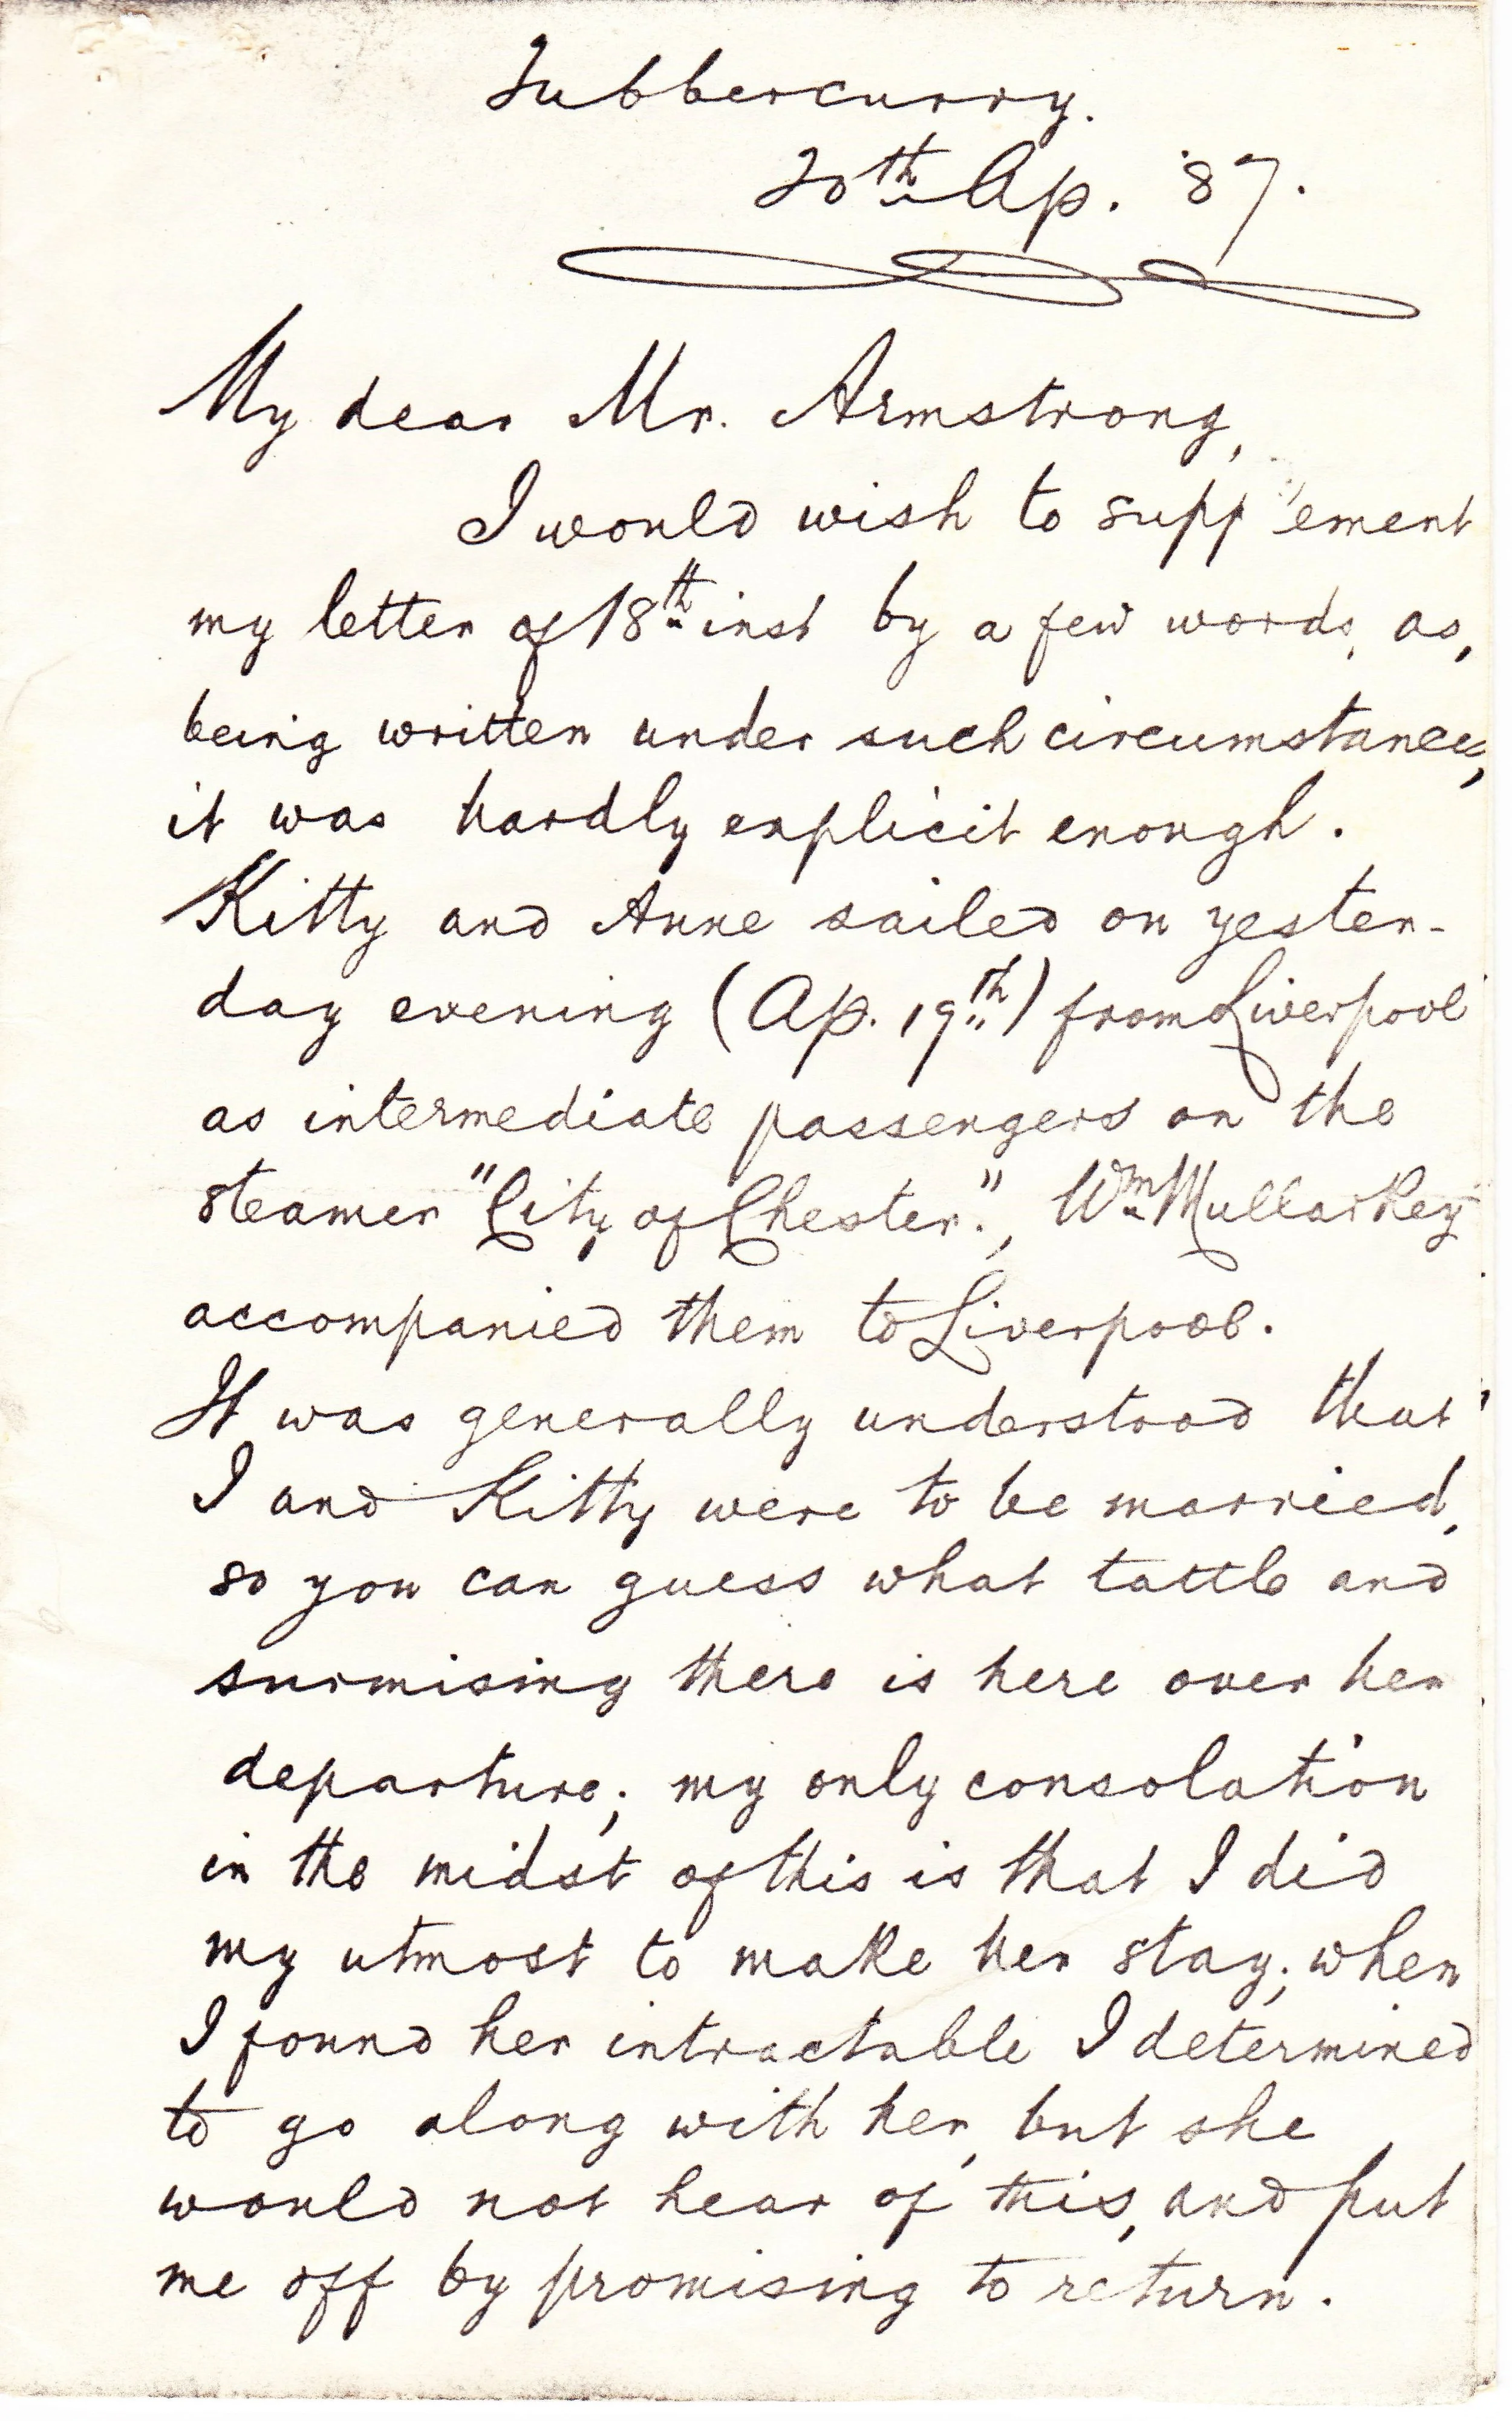 Tubbercurry.
20th Ap. '87.
My dear Mr. Armstrong,
I would wish to supplement
my letter of 18th inst by a few words, as,
being written under such circumstances,
it was hardly explicit enough.
Kitty and Anne sailed on yester-
day evening (Ap. 19th) from Liverpool
as intermediate passengers on the
steamer "City of Chester.", Wm Mullarkey
accompanied them to Liverpool.
It was generally understood that
I and Kitty were to be married,
so you can guess what tattle and
surmising there is here over her
departure; my only consolation
in the midst of this is that I did
my utmost to make her stay; when
I found her intractable I determined
to go along with her, but she
would not hear of this, and put
me off by promising to return.